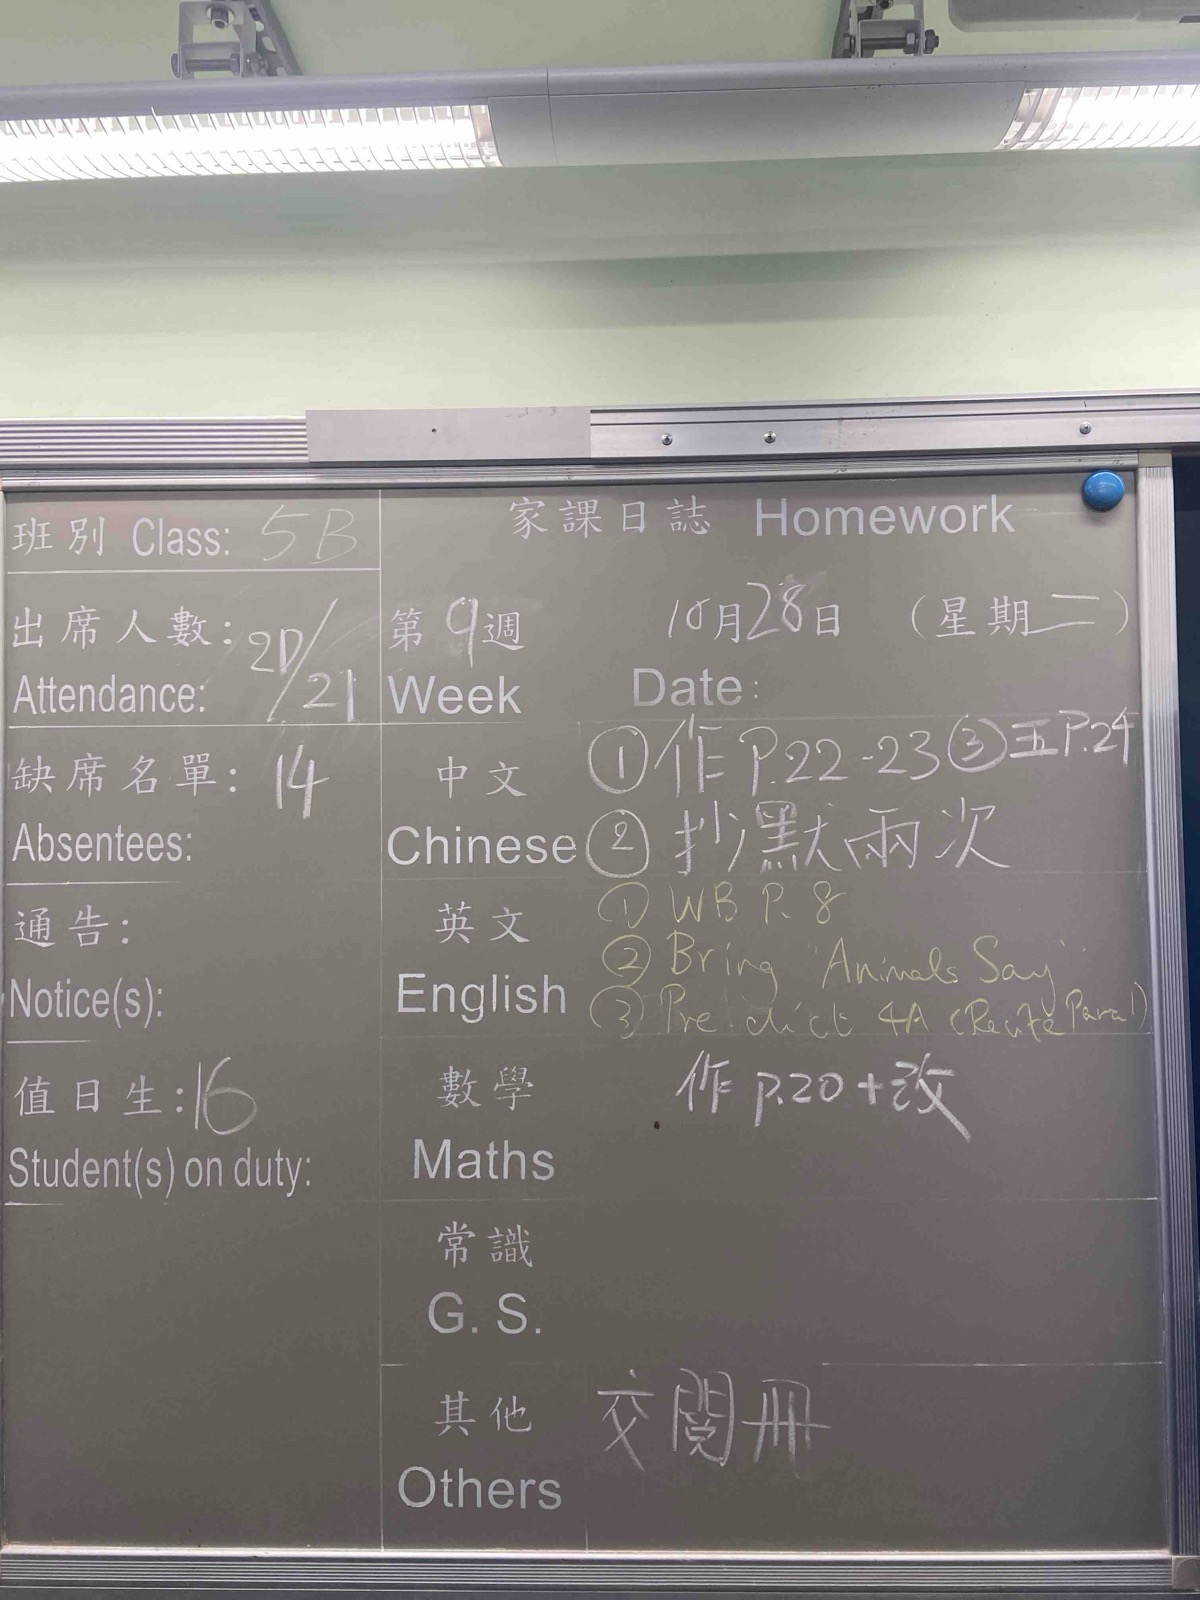 班別 Class: 5B
家課日誌 Homework
出席人數: 20/21
Attendance:
第9週
Week
10月28日 (星期二)
Date:
缺席名單: 14
Absentees:
中文
Chinese
① 作 P.22-23 ③ 五 P.24
② 抄默兩次
通告:
Notice(s):
英文
English
① WB P. 8
② Bring "Animals Say"
③ Pre. dict 4A (Recite Para 1)
值日生: 16
Student(s) on duty:
數學
Maths
作 p.20 + 改
常識
G. S.
其他
Others
交閱冊